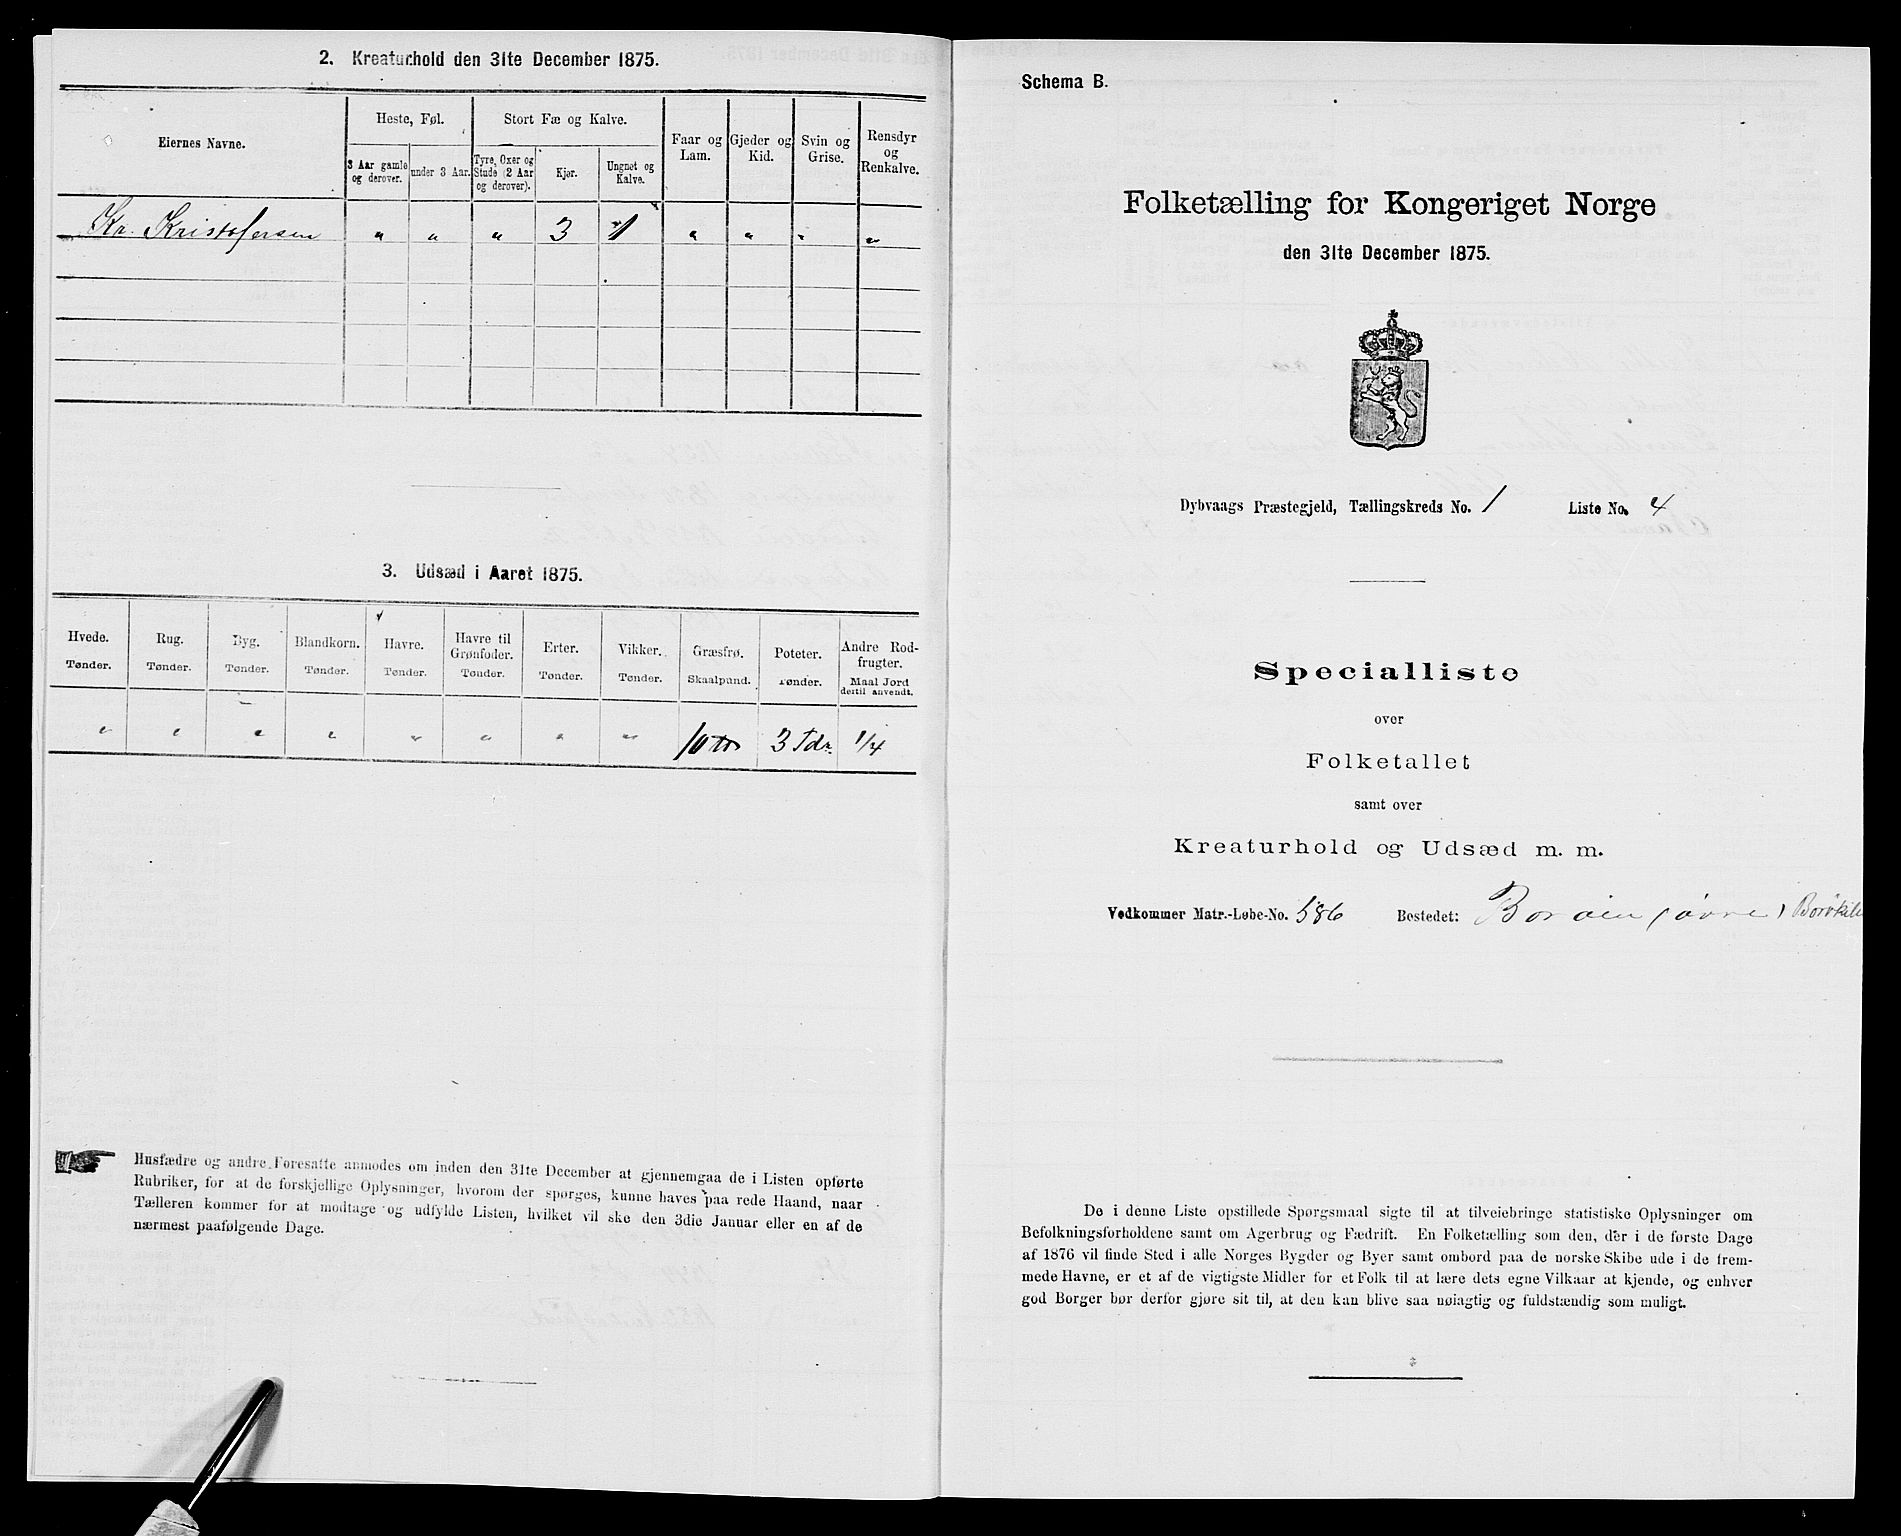 2. Kreaturhold den 31te December 1875.
Eiernes Navne.
Heste, Føl.
3 Aar gamle og derover.
under 3 Aar.
Stort Fæ og Kalve.
Tyre, Oxer og Stude (2 Aar og derover).
Kjør.
Ungnet og Kalve.
Faar og Lam.
Gjeder og Kid.
Svin og Grise.
Rensdyr og Renkalve.
Kr. Kristofersen " " " 3 1 " " " "
3. Udsæd i Aaret 1875.
Hvede. Tønder.
Rug. Tønder.
Byg. Tønder.
Blandkorn. Tønder.
Havre. Tønder.
Havre til Grønfoder. Tønder.
Erter. Tønder.
Vikker. Tønder.
Græsfrø. Skaalpund.
Poteter. Tønder.
Andre Rodfrugter. Maal Jord dertil anvendt.
" " " " " " " " 10 3 Tdr. 1/4
Husfædre og andre Foresatte anmodes om inden den 31te December at gjennemgaa de i Listen opførte
Rubriker, for at de forskjellige Oplysninger, hvorom der spørges, kunne haves paa rede Haand, naar
Tælleren kommer for at modtage og udfylde Listen, hvilket vil ske den 3die Januar eller en af de
nærmest paafølgende Dage.
Schema B.
Folketælling for Kongeriget Norge
den 31te December 1875.
Dybvaags Præstegjeld, Tællingskreds No. 1 Liste No. 4
Specialliste
over
Folketallet
samt over
Kreaturhold og Udsæd m. m.
Vedkommer Matr.-Løbe-No. 586 Bostedet: Borøen (øvre)
De i denne Liste opstillede Spørgsmaal sigte til at tilveiebringe statistiske Oplysninger om
Befolkningsforholdene samt om Agerbrug og Fædrift. En Folketælling som den, der i de første Dage
af 1876 vil finde Sted i alle Norges Bygder og Byer samt ombord paa de norske Skibe ude i de frem-
mede Havne, er et af de vigtigste Midler for et Folk til at lære dets egne Vilkaar at kjende, og enhver
god Borger bør derfor gjøre sit til, at den kan blive saa nøiagtig og fuldstændig som muligt.